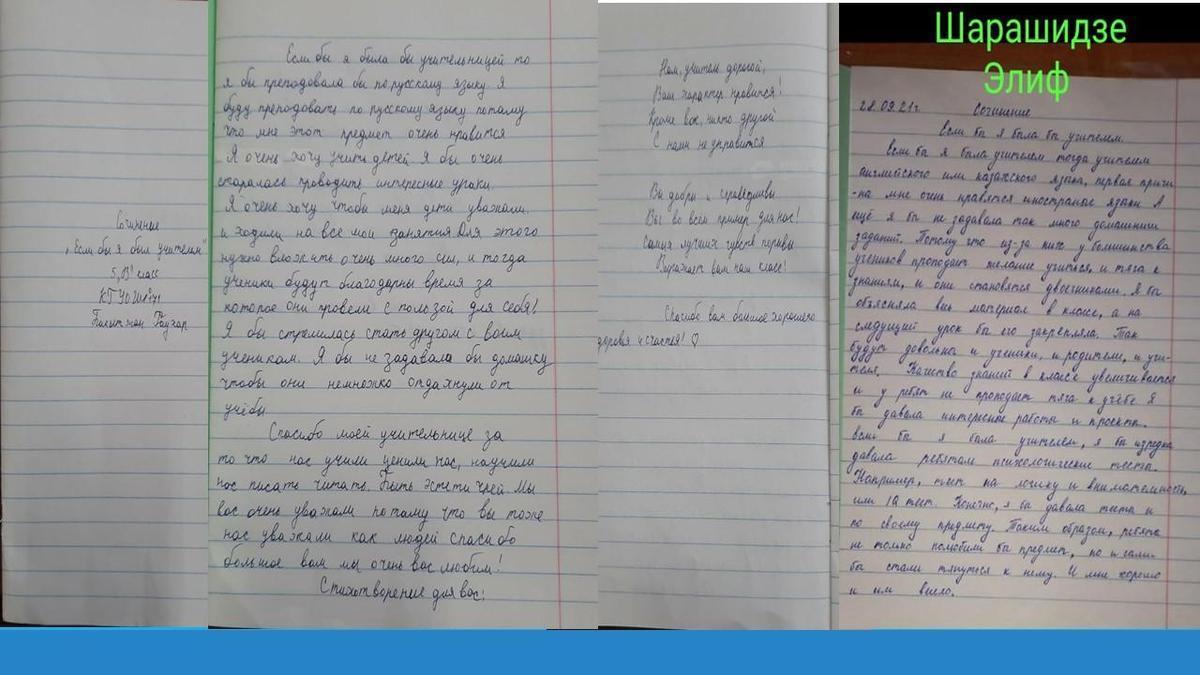 Сочинение
„Если бы я был учителем"
5 „В" класс
КГУ ОШ №71
Если бы я была бы учительницей то
я бы преподовала бы по русскаму языку я
буду преподовать по русскому языку потаму
что мне этот предмет очень нравится
Я очень хочу учить детей я бы очень
старалась праводить интересные уроки.
Я очень хочу чтобы меня дети уважали.
и ходили на все мои занятия Для этого
нужно вложить очень много сил, и тогда
ученики будут благодарны время за
которое они провели с пользой для себя!
Я бы стремилась стать другом с воим
ученикам. Я бы не задавала бы домашку
чтобы они немножко отдахнули от
учёбы
Спасибо моей учительнице за
то что нас учили ценили нас, научили
нас писать читать. Быть эстети чней. Мы
вас очень уважали потаму что вы тоже
нас уважали как людей спасибо
большое вам мы очень вас любим!
Стихотворение для вас!
Нам, учитель дорогой,
Ваш характер нравится!
Кроме вас, никто другой
С нами не управится
Вы добры и справедливы
Вы во всем пример для нас!
Самых лучших чувств порывы
Выражает вам наш класс!
Спасибо вам большое хорошего
доровья и счастья! ♡
Шарашидзе
Элиф
28.09.21г.
Сочинение
Если бы я была бы учителем.
Если бы я была учителем тогда учителем
английского или казахского языка, первая причи-
-на мне очень нравятся иностраные языки А
ещё я бы не задавала так много домашних
заданий. Потому что из-за него у большинства
учеников пропадает желание учиться, и тяга к
знаниям, и они становятся двоечниками. Я бы
объясняла весь материал в классе, а на
следущий урок бы его закрепляла. Так
будут довольны и ученики, и родители, и учи-
теля. Качество знаний в классе увеличивается
и у ребят не пропадает тяга к учёбе Я
бы давала интересные работы и проекты.
если бы я была учителем, я бы изредка
давала ребятам психологические тесты.
Например, тест на логику и внимательность,
или IQ тест. Конечно, я бы давала теста и
по своему предмету. Таким образом, ребята
не только полюбили бы предмет, но и сами-
бы стали тянуться к нему. И мне хорошо
и им весело.